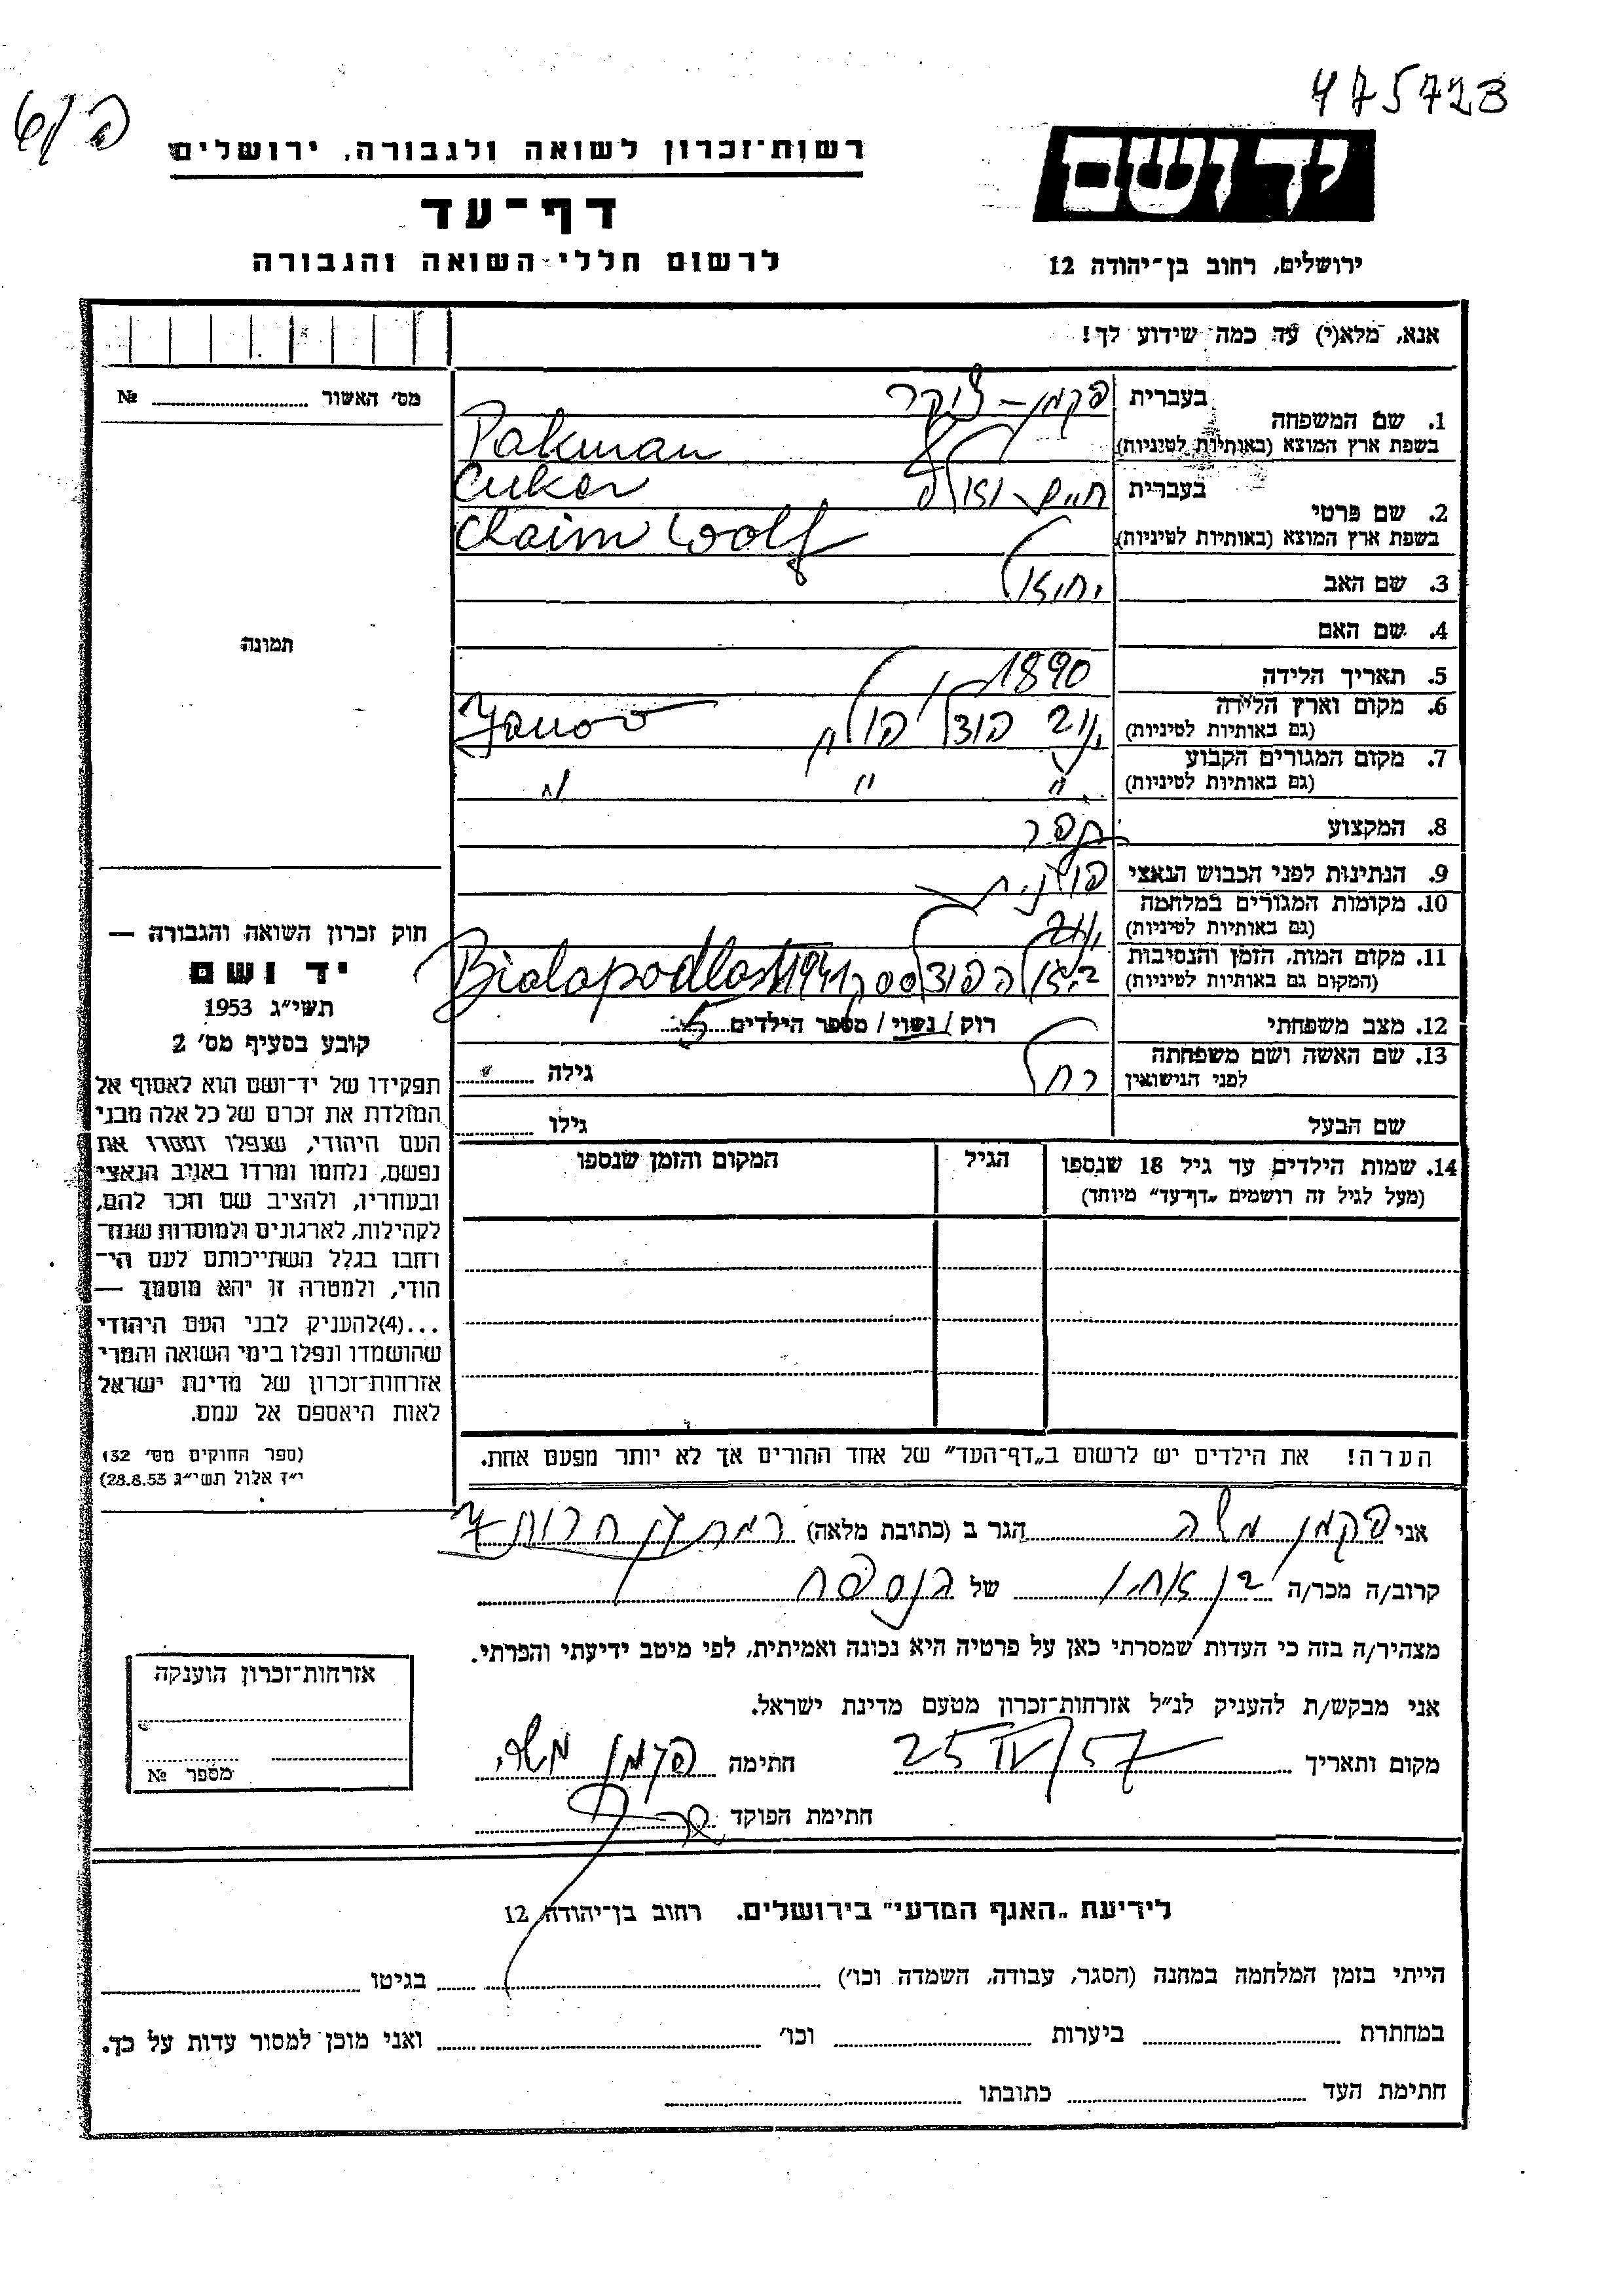 475723
רשות־זכרון לשואה ולגבורה, ירושלים
יד ושם
דף־עד
לרשום חללי השואה והגבורה
ירושלים, רחוב בן־יהודה 12
אנא, מלא(י) עד כמה שידוע לך!
מס׳ האשור № 
1. שם המשפחה בעברית פקמן - צוקר
בשפת ארץ המוצא (באותיות לטיניות) Pakman
Cuker
2. שם פרטי בעברית חיים
בשפת ארץ המוצא (באותיות לטיניות) Chaim Woolf
3. שם האב
4. שם האם
תמונה
5. תאריך הלידה 1890
6. מקום וארץ הלידה
(גם באותיות לטיניות) Yanov
7. מקום המגורים הקבוע
(גם באותיות לטיניות) " " "
8. המקצוע
9. הנתינות לפני הכבוש הנאצי פולנית
10. מקומות המגורים במלחמה
(גם באותיות לטיניות)
11. מקום המות, הזמן והנסיבות
(המקום גם באותיות לטיניות) 1941
12. מצב משפחתי רוק / נשוי / מספר הילדים 5
13. שם האשה ושם משפחתה
לפני הנישואין רחל גילה
שם הבעל גילו
14. שמות הילדים עד גיל 18 שנספו הגיל המקום והזמן שנספו
(מעל לגיל זה רושמים „דף־עד״ מיוחד)
חוק זכרון השואה והגבורה —
יד ושם
תשי״ג 1953
קובע בסעיף מס׳ 2
תפקידו של יד־ושם הוא לאסוף אל
המולדת את זכרם של כל אלה מבני
העם היהודי, שנפלו ומסרו את
נפשם, נלחמו ומרדו באויב הנאצי
ובעוזריו, ולהציב שם וזכר להם,
לקהילות, לארגונים ולמוסדות שנח־
רחבו בגלל השתייכותם לעם הי־
הודי, ולמטרה זו יהא מוסמך —
...(4)להעניק לבני העם היהודי
שהושמדו ונפלו בימי השואה והמרי
אזרחות־זכרון של מדינת ישראל
לאות היאספם אל עמם.
(ספר החוקים מס׳ 132
י״ז אלול תשי״ג 28.8.53)
הערה! את הילדים יש לרשום ב„דף־העד״ של אחד ההורים אך לא יותר מפעם אחת.
אני פקמן משה הגר ב (כתובת מלאה) רמת גן חרות
קרוב/ה מכר/ה בן אחיו של הנספה
מצהיר/ה בזה כי העדות שמסרתי כאן על פרטיה היא נכונה ואמיתית, לפי מיטב ידיעתי והכרתי.
אני מבקש/ת להעניק לנ״ל אזרחות־זכרון מטעם מדינת ישראל.
מקום ותאריך 25 IV/57 חתימה פקמן משה
חתימת הפוקד
אזרחות־זכרון הוענקה
מספר №
לידיעת „האגף המדעי״ בירושלים, רחוב בן־יהודה 12
הייתי בזמן המלחמה במחנה (הסגר, עבודה, השמדה וכו׳) בגיטו
במחתרת ביערות וכו׳ ואני מוכן למסור עדות על כך.
חתימת העד כתובתו